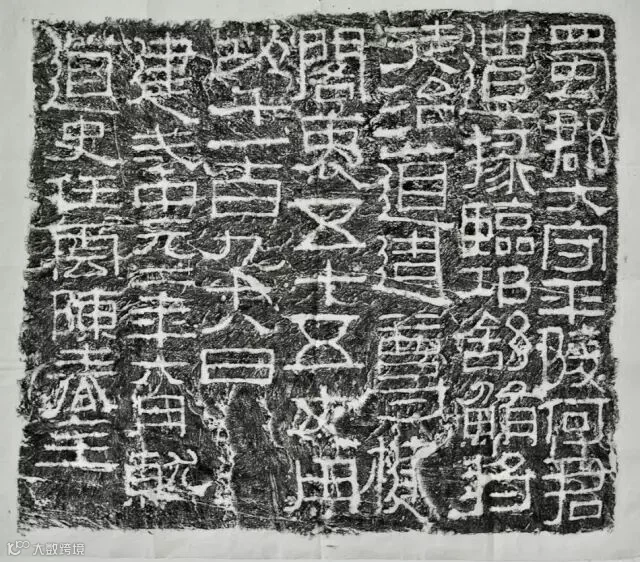 蜀郡大守平陵何君
遣掾臨邛舒鮪将
徒治道造尊楗
閣袤五十五丈用
功千一百九十八日
建武中元二年六月就
道史任雲陳春主
大数跨境